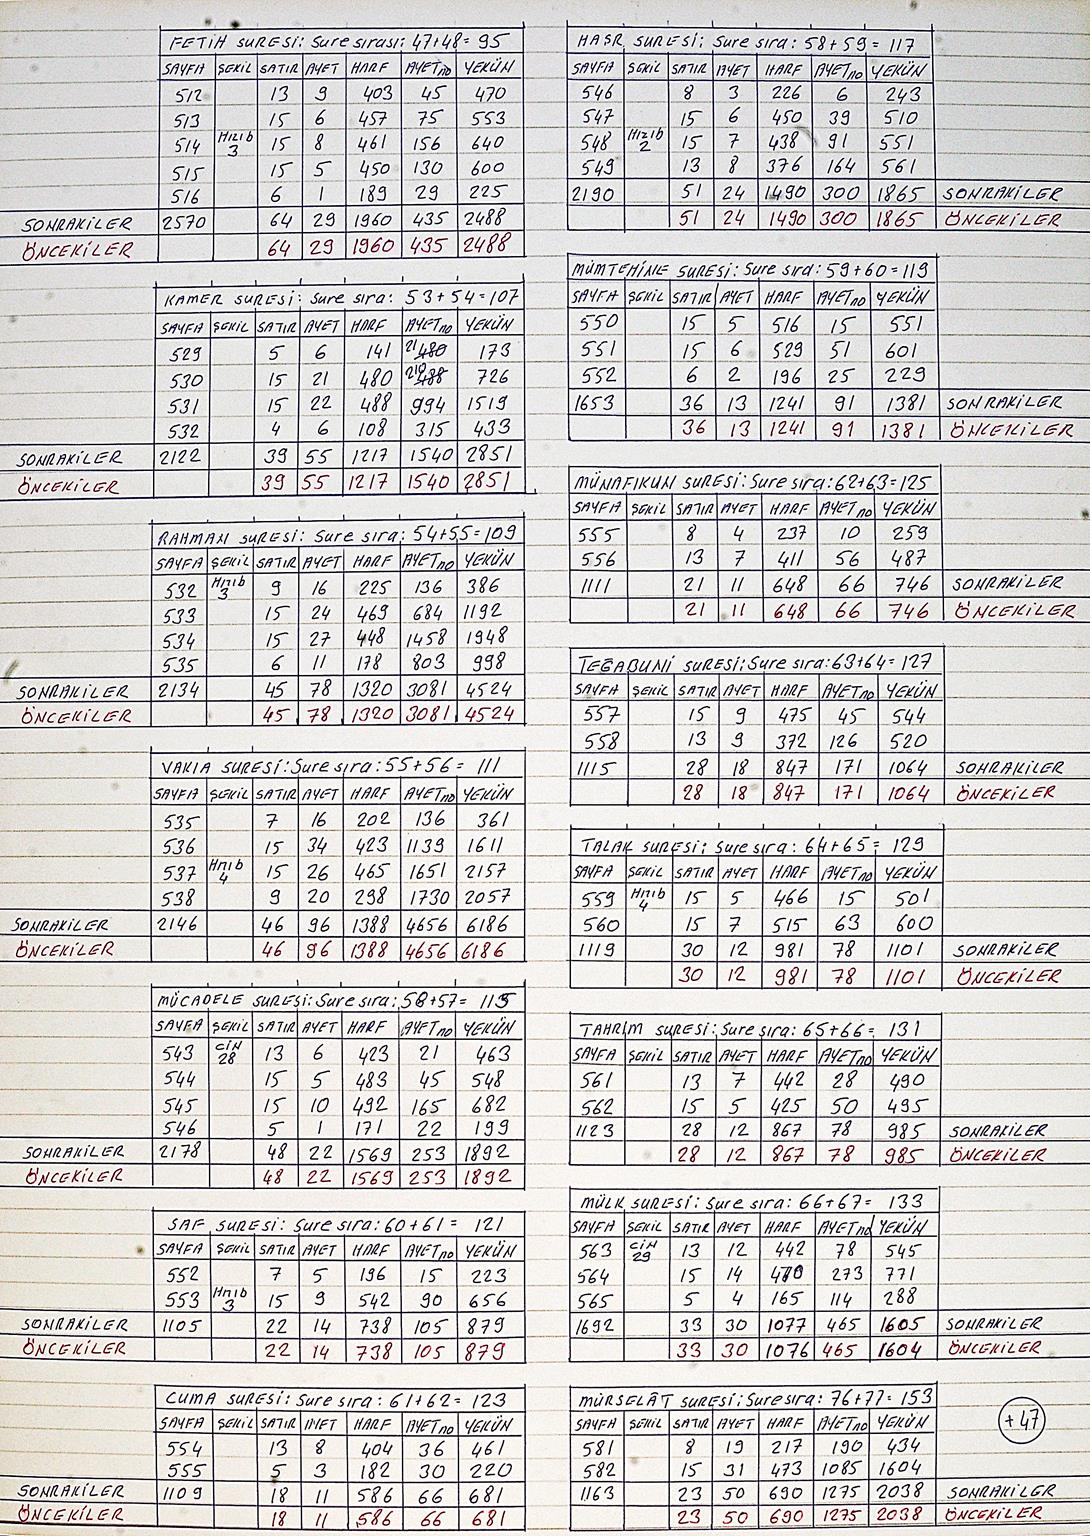 FETİH SURESİ: Sure sırası: 47+48=95
SAYFA ŞEKİL SATIR AYET HARF AYET no YEKÜN
512 13 9 403 45 470
513 15 6 457 75 553
514 Hızıb 3 15 8 461 156 640
515 15 5 450 130 600
516 6 1 189 29 225
SONRAKİLER 2570 64 29 1960 435 2488
ÖNCEKİLER 64 29 1960 435 2488
KAMER SURESİ: Sure sıra: 53+54=107
SAYFA ŞEKİL SATIR AYET HARF AYET no YEKÜN
529 5 6 141 21 480 173
530 15 21 480 210 488 726
531 15 22 488 994 1519
532 4 6 108 315 433
SONRAKİLER 2122 39 55 1217 1540 2851
ÖNCEKİLER 39 55 1217 1540 2851
RAHMAN SURESİ: Sure sıra: 54+55=109
SAYFA ŞEKİL SATIR AYET HARF AYET no YEKÜN
532 Hızıb 3 9 16 225 136 386
533 15 24 469 684 1192
534 15 27 448 1458 1948
535 6 11 178 803 998
SONRAKİLER 2134 45 78 1320 3081 4524
ÖNCEKİLER 45 78 1320 3081 4524
VAKIA SURESİ: Sure sıra: 55+56= 111
SAYFA ŞEKİL SATIR AYET HARF AYET no YEKÜN
535 7 16 202 136 361
536 15 34 423 1139 1611
537 Hızıb 4 15 26 465 1651 2157
538 9 20 298 1730 2057
SONRAKİLER 2146 46 96 1388 4656 6186
ÖNCEKİLER 46 96 1388 4656 6186
MÜCADELE SURESİ: Sure sıra: 58+57= 115
SAYFA ŞEKİL SATIR AYET HARF AYET no YEKÜN
543 CİN 28 13 6 423 21 463
544 15 5 483 45 548
545 15 10 492 165 682
546 5 1 171 22 199
SONRAKİLER 2178 48 22 1569 253 1892
ÖNCEKİLER 48 22 1569 253 1892
SAF SURESİ: Sure sıra: 60+61= 121
SAYFA ŞEKİL SATIR AYET HARF AYET no YEKÜN
552 7 5 196 15 223
553 Hızıb 3 15 9 542 90 656
SONRAKİLER 1105 22 14 738 105 879
ÖNCEKİLER 22 14 738 105 879
CUMA SURESİ: Sure sıra: 61+62= 123
SAYFA ŞEKİL SATIR AYET HARF AYET no YEKÜN
554 13 8 404 36 461
555 5 3 182 30 220
SONRAKİLER 1109 18 11 586 66 681
ÖNCEKİLER 18 11 586 66 681
HAŞR SURESİ: Sure sıra: 58+59= 117
SAYFA ŞEKİL SATIR AYET HARF AYET no YEKÜN
546 8 3 226 6 243
547 15 6 450 39 510
548 Hızıb 2 15 7 438 91 551
549 13 8 376 164 561
2190 51 24 1490 300 1865 SONRAKİLER
51 24 1490 300 1865 ÖNCEKİLER
MÜMTEHİNE SURESİ: Sure sıra: 59+60=119
SAYFA ŞEKİL SATIR AYET HARF AYET no YEKÜN
550 15 5 516 15 551
551 15 6 529 51 601
552 6 2 196 25 229
1653 36 13 1241 91 1381 SONRAKİLER
36 13 1241 91 1381 ÖNCEKİLER
MÜNAFIKUN SURESİ: Sure sıra: 62+63=125
SAYFA ŞEKİL SATIR AYET HARF AYET no YEKÜN
555 8 4 237 10 259
556 13 7 411 56 487
1111 21 11 648 66 746 SONRAKİLER
21 11 648 66 746 ÖNCEKİLER
TEĞABUNİ SURESİ: Sure sıra: 63+64= 127
SAYFA ŞEKİL SATIR AYET HARF AYET no YEKÜN
557 15 9 475 45 544
558 13 9 372 126 520
1115 28 18 847 171 1064 SONRAKİLER
28 18 847 171 1064 ÖNCEKİLER
TALAK SURESİ: Sure sıra: 64+65= 129
SAYFA ŞEKİL SATIR AYET HARF AYET no YEKÜN
559 Hızıb 4 15 5 466 15 501
560 15 7 515 63 600
1119 30 12 981 78 1101 SONRAKİLER
30 12 981 78 1101 ÖNCEKİLER
TAHRİM SURESİ: Sure sıra: 65+66= 131
SAYFA ŞEKİL SATIR AYET HARF AYET no YEKÜN
561 13 7 442 28 490
562 15 5 425 50 495
1123 28 12 867 78 985 SONRAKİLER
28 12 867 78 985 ÖNCEKİLER
MÜLK SURESİ: Sure sıra: 66+67= 133
SAYFA ŞEKİL SATIR AYET HARF AYET no YEKÜN
563 CİN 29 13 12 442 78 545
564 15 14 470 273 771
565 5 4 165 114 288
1692 33 30 1077 465 1605 SONRAKİLER
33 30 1076 465 1604 ÖNCEKİLER
MÜRSELÂT SURESİ: Sure sıra: 76+77= 153
SAYFA ŞEKİL SATIR AYET HARF AYET no YEKÜN
581 8 19 217 190 434
582 15 31 473 1085 1604
1163 23 50 690 1275 2038 SONRAKİLER
23 50 690 1275 2038 ÖNCEKİLER
+47